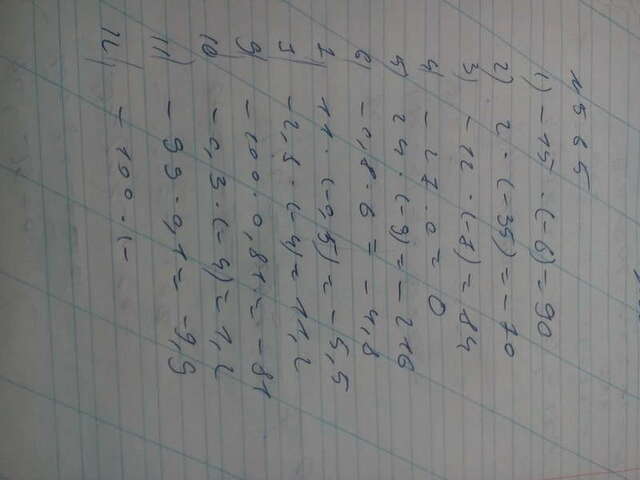 №565
1) -15 · (-6) = 90
2) 2 · (-35) = -70
3) -12 · (-7) = 84
4) -27 · 0 = 0
5) 24 · (-9) = -216
6) -0,8 · 6 = -4,8
7) 11 · (-0,5) = -5,5
8) -2,8 · (-4) = 11,2
9) -100 · 0,81 = -81
10) -0,3 · (-4) = 1,2
11) -99 · 0,1 = -9,9
12) -100 · (-